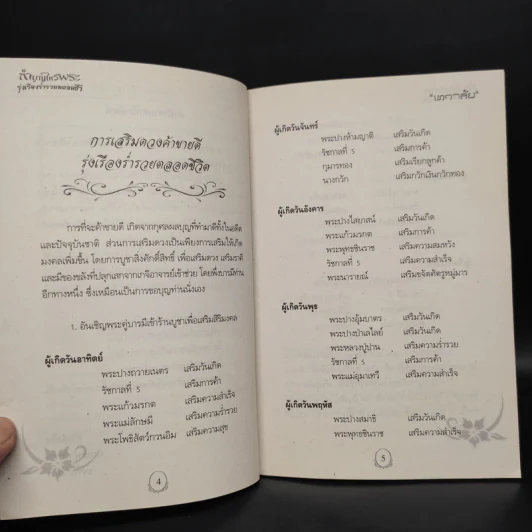 รุ่งเรืองร่ำรวยตลอดชีวิต
การเสริมดวงค้าขายดี
รุ่งเรืองร่ำรวยตลอดชีวิต
การที่จะค้าขายดี เกิดจากกุศลผลบุญที่ทำมาดีทั้งในอดีต
และปัจจุบันชาติ ส่วนการเสริมดวงเป็นเพียงการเสริมให้เกิด
มงคลเพิ่มขึ้น โดยการบูชาสิ่งศักดิ์สิทธิ์ เพื่อเสริมดวง เสริมบารมี
และมีของขลังที่ปลุกเสกจากเกจิอาจารย์เข้าช่วย โดยพึ่งบารมีท่าน
อีกทางหนึ่ง ซึ่งเหมือนเป็นการขอบุญท่านนั่นเอง
1. อันเชิญพระคู่บารมีเข้าร้านบูชาเพื่อเสริมสิริมงคล
ผู้เกิดวันอาทิตย์
พระปางถวายเนตร เสริมวันเกิด
รัชกาลที่ 5 เสริมการค้า
พระแก้วมรกต เสริมความสำเร็จ
พระแม่ลักษมี เสริมความร่ำรวย
พระโพธิสัตว์กวนอิม เสริมความสุข
4
ผู้เกิดวันจันทร์
พระปางห้ามญาติ เสริมวันเกิด
รัชกาลที่ 5 เสริมการค้า
กุมารทอง เสริมเรียกลูกค้า
นางกวัก เสริมกวักเงินกวักทอง
ผู้เกิดวันอังคาร
พระปางไสยาสน์ เสริมวันเกิด
พระแก้วมรกต เสริมการค้า
พระพุทธชินราช เสริมความสมหวัง
รัชกาลที่ 5 เสริมความสำเร็จ
พระนารายณ์ เสริมขจัดศัตรูหมู่มาร
ผู้เกิดวันพุธ
พระปางอุ้มบาตร เสริมวันเกิด
พระปางป่าเลไลย์ เสริมวันเกิด
พระหลวงปู่ปาน เสริมความร่ำรวย
รัชกาลที่ 5 เสริมการค้า
พระแม่อุมาเทวี เสริมความสำเร็จ
ผู้เกิดวันพฤหัส
พระปางสมาธิ เสริมวันเกิด
พระพุทธชินราช เสริมความสำเร็จ
5